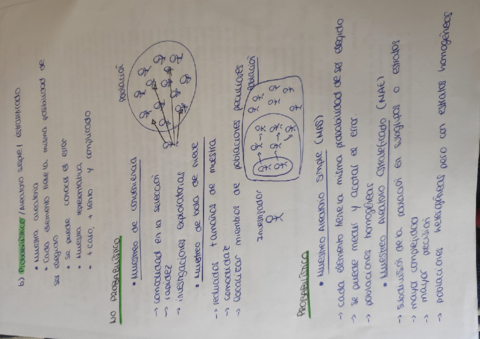 b) PROBABILÍSTICO / Muestreo simple / estratificado
• Muestra aleatoria
• Cada elemento tiene la misma probabilidad de
ser elegido
• Se puede conocer el error
• Muestra representativa
• + caro, + lento y complicado
NO PROBABILÍSTICO
• Muestreo de conveniencia
→ comodidad en la selección
→ rapidez
→ investigaciones exploratorias
• Muestreo de bola de nieve
→ reducidos tamaños de muestra
→ comodidad
→ localizar miembros de poblaciones peculiares
población
población
Investigador
PROBABILÍSTICO
• MUESTREO ALEATORIO SIMPLE (MAS)
→ cada elemento tiene la misma probabilidad de ser elegido
→ se puede medir y acotar el error
→ poblaciones homogéneas
• MUESTREO ALEATORIO ESTRATIFICADO (MAE)
→ subdivisión de la población en subgrupos o estratos
→ mayor complejidad
→ mayor precisión
→ poblaciones heterogéneas pero con estratos homogéneos